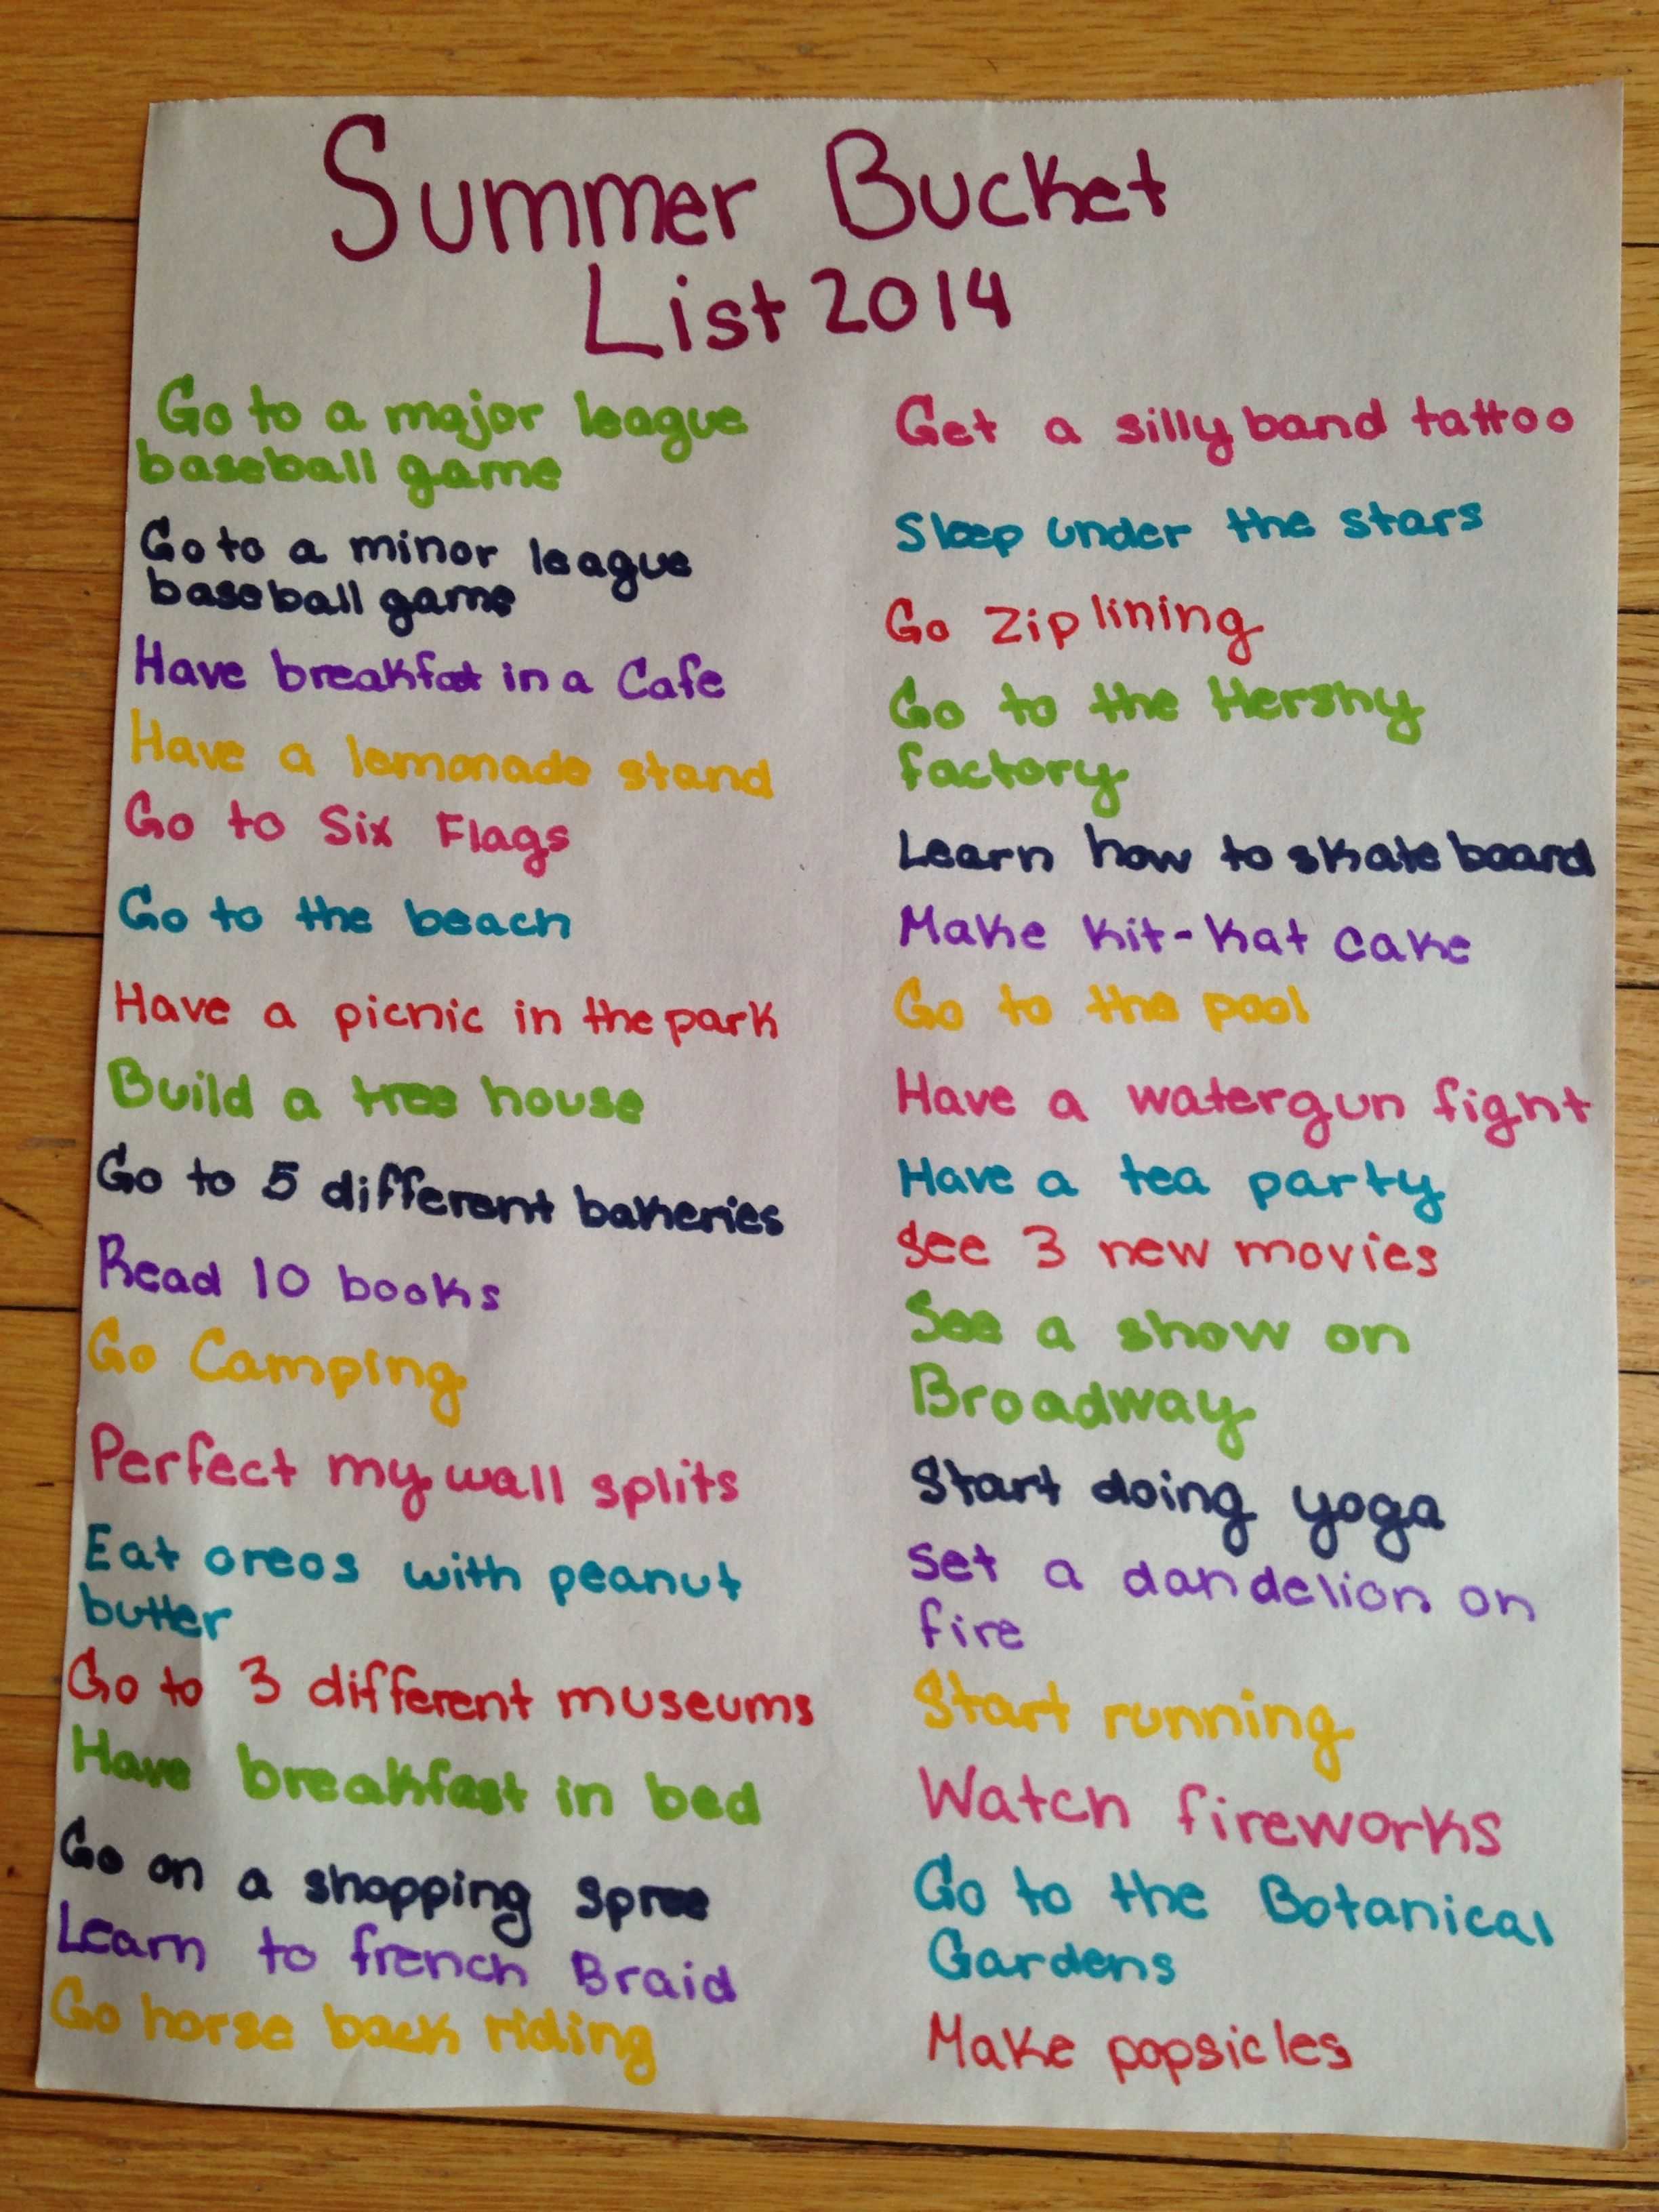 Summer Bucket
List 2014
Go to a major league
baseball game
Go to a minor league
baseball game
Have breakfast in a Cafe
Have a lemonade stand
Go to Six Flags
Go to the beach
Have a picnic in the park
Build a tree house
Go to 5 different bakeries
Read 10 books
Go Camping
Perfect my wall splits
Eat oreos with peanut
butter
Go to 3 different museums
Have breakfast in bed
Go on a shopping spree
Learn to french Braid
Go horse back riding
Get a silly band tattoo
Sleep under the stars
Go Zip lining
Go to the Hershy
factory
Learn how to skate board
Make kit-kat cake
Go to the pool
Have a watergun fight
Have a tea party
See 3 new movies
See a show on
Broadway
Start doing yoga
Set a dandelion on
fire
Start running
Watch fireworks
Go to the Botanical
Gardens
Make popsicles